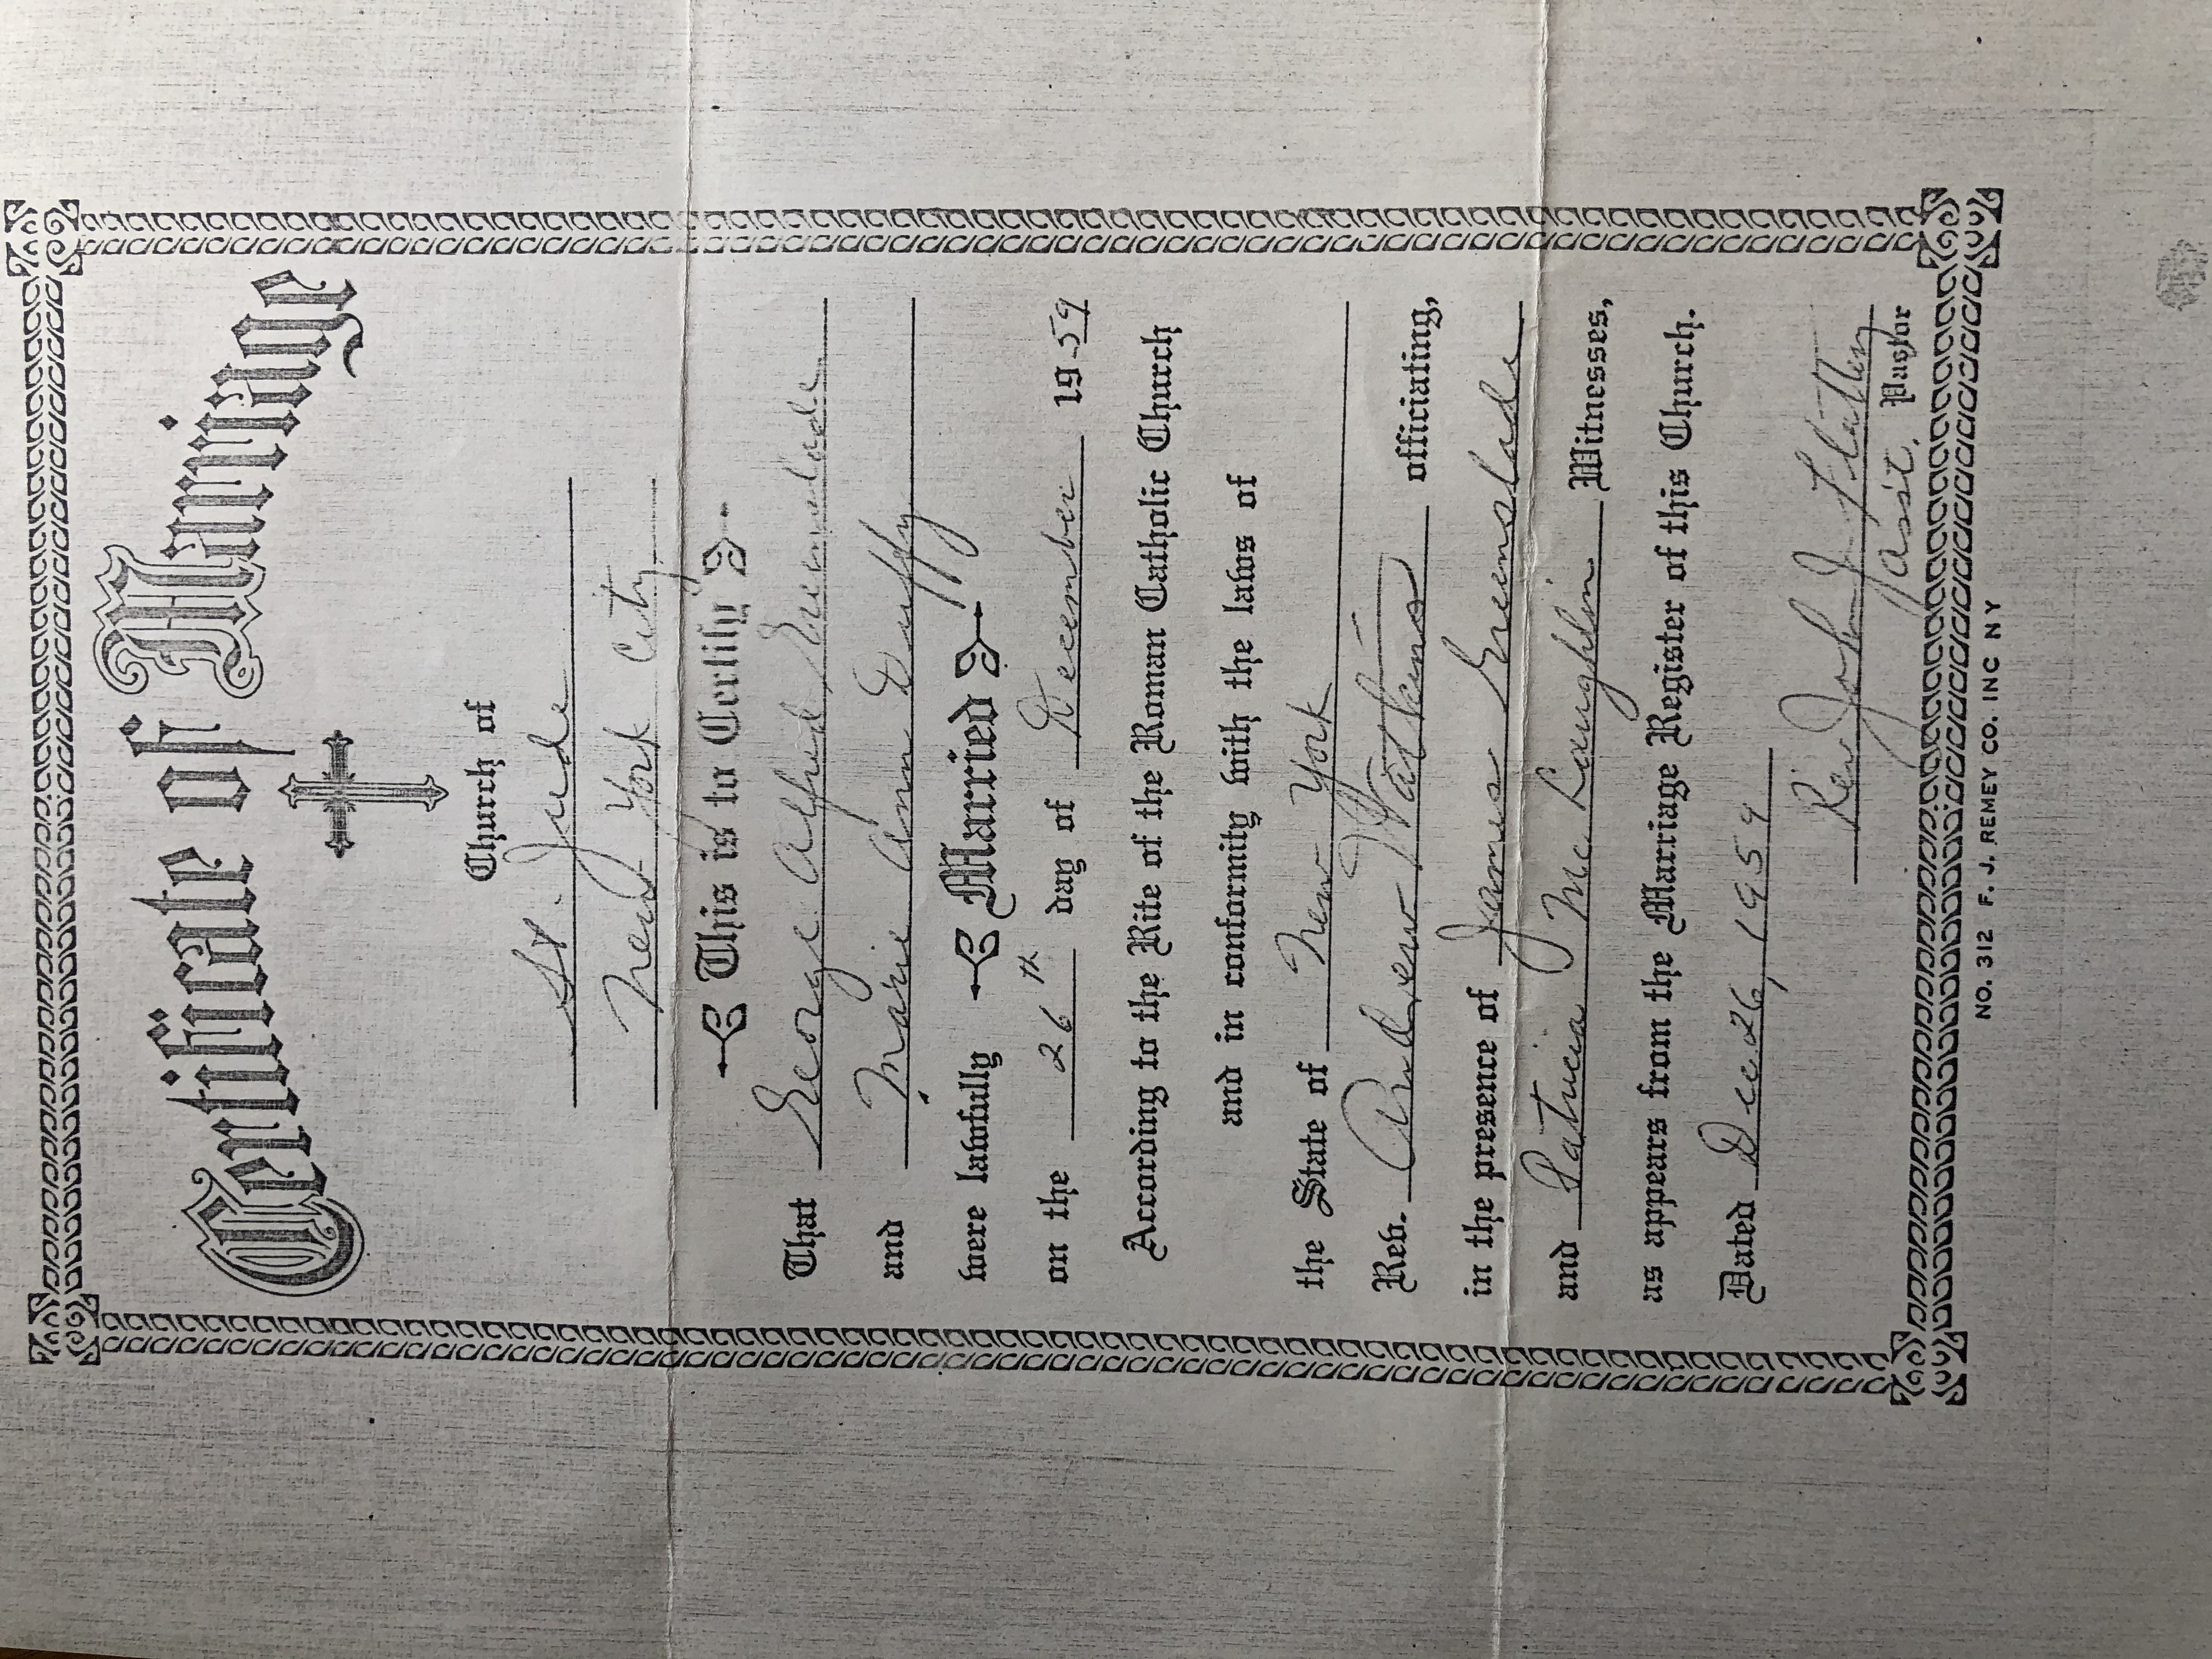 Certificate of Marriage
Church of
St. Jude
New York City
This is to Certify
That George Alfred Greenslade
and Marie Ann Duffy
were lawfully Married
on the 26th day of December 1959
According to the Rite of the Roman Catholic Church
and in conformity with the laws of
the State of New York
Rev. Andrew Watkins officiating,
in the presence of James Greenslade
and Patricia Mc Laughlin Witnesses,
as appears from the Marriage Register of this Church.
Dated Dec. 26, 1959
Rev. John J. Flattery
Asst. Pastor
NO. 312 F. J. REMEY CO. INC N Y